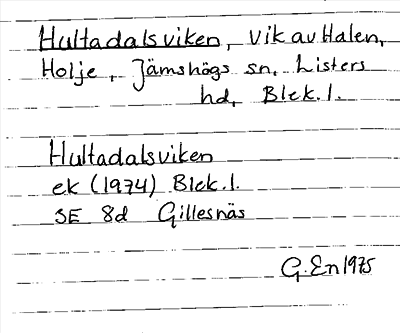 Hultadalsviken, Vik av Halen,
Holje, Jämshögs sn. Listers
hd, Blek.l.
Hultadalsviken
ek (1974) Blek.l.
SE 8d Gillesnäs
G.En 1975